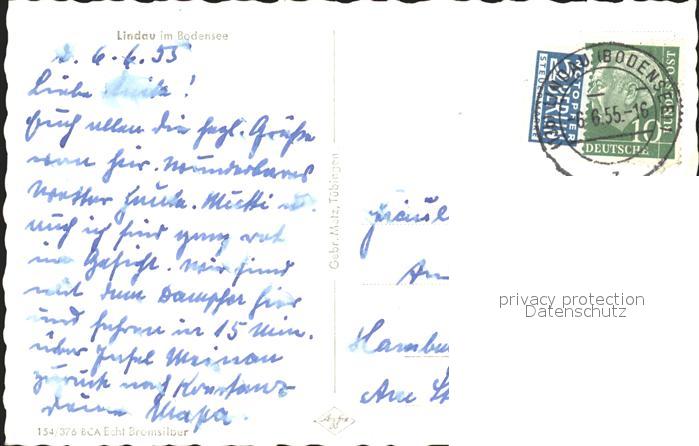 Lindau im Bodensee
d. 6.6.55
Liebe Anita!
Euch allen die herzl. Grüße
von hier. Wunderbares
Wetter heute. Mutti u.
auch ich sind ganz rot
im Gesicht. Wir sind
mit dem Dampfer hier
und fahren in 15 Min.
über Insel Meinau
zurück nach Konstanz
deine
154/376 BCA Echt Bromsilber
Gebr. Metz, Tübingen
NOTOPFER
BERLIN
STEUERMARKE
LINDAU (BODENSEE)
6.6.55.-16
10
DEUTSCHE
BUNDESPOST
Fräul
An
Hambu
Am
privacy protection
Datenschutz